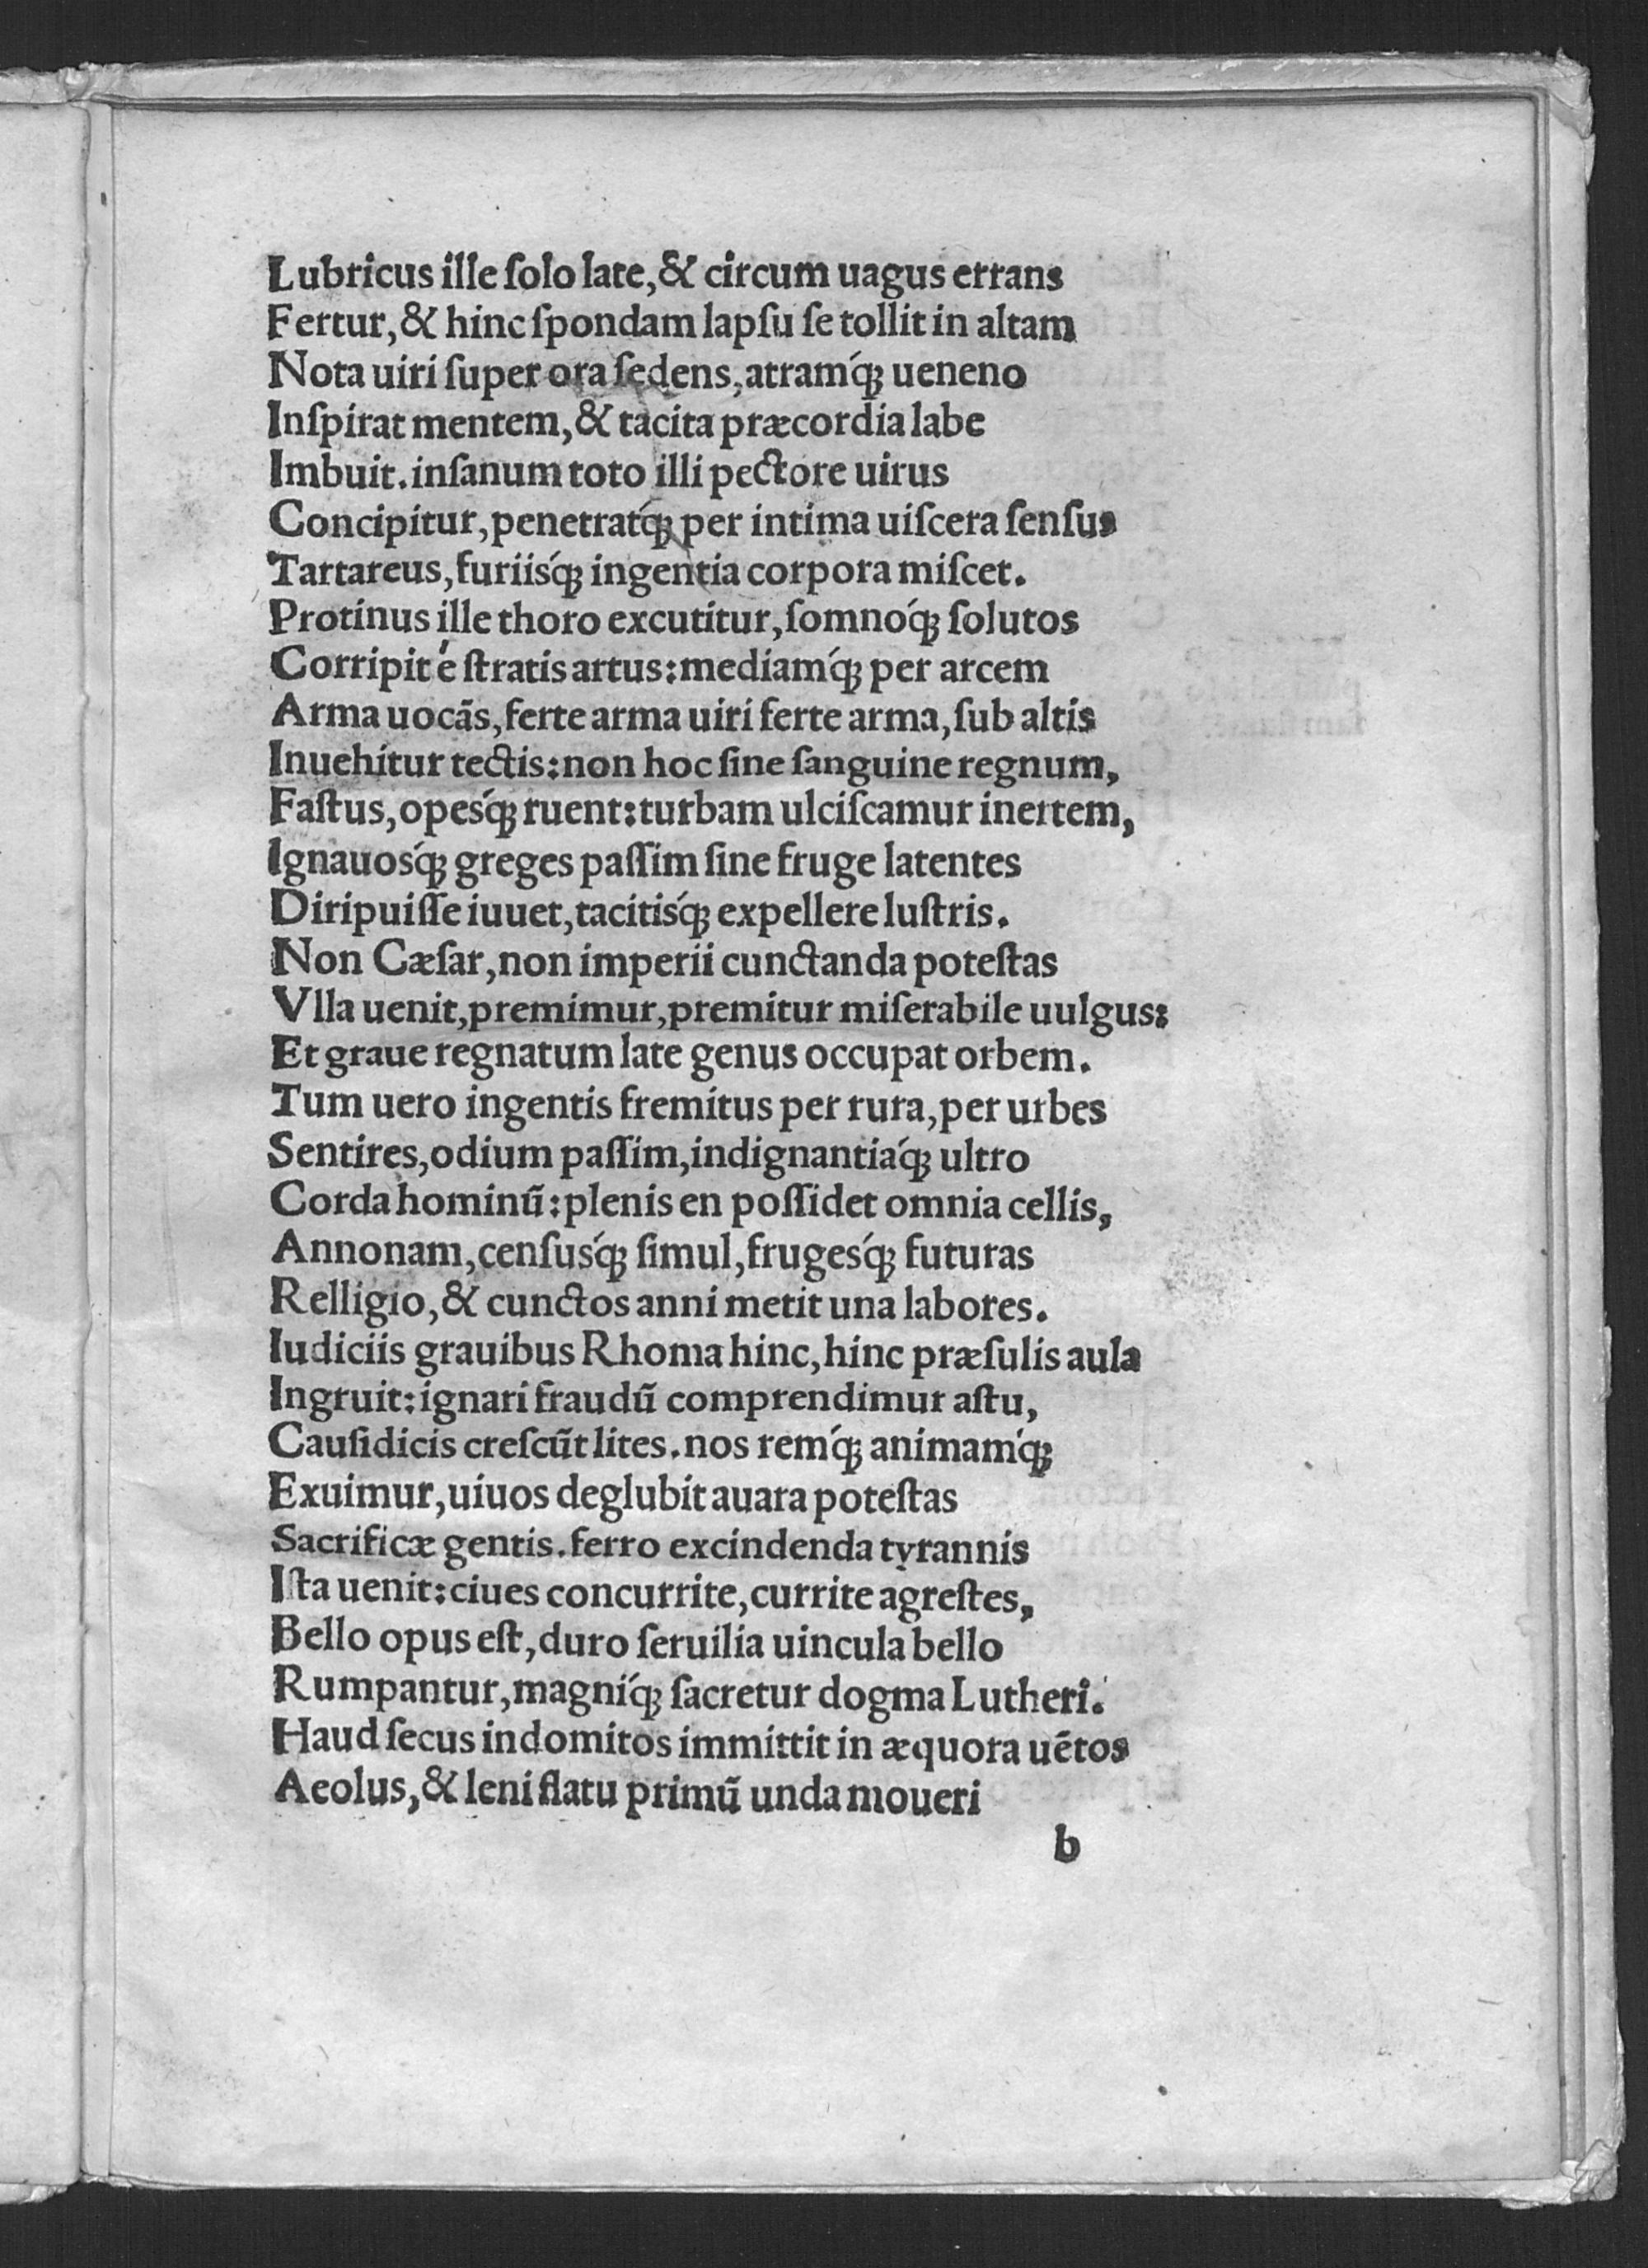 Lubricus ille ſolo late, & circum uagus errans
Fertur, & hinc ſpondam lapſu ſe tollit in altam
Nota uiri ſuper ora ſedens, atramq́ꝫ ueneno
Inſpirat mentem, & tacita præcordia labe
Imbuit. inſanum toto illi pectore uirus
Concipitur, penetratq́ꝫ per intima uiſcera ſenſus
Tartareus, furiisq́ꝫ ingentia corpora miſcet.
Protinus ille thoro excutitur, ſomnoq́ꝫ ſolutos
Corripit é ſtratis artus: mediamq́ꝫ per arcem
Arma uocãs, ferte arma uiri ferte arma, ſub altis
Inuehitur tectis: non hoc ſine ſanguine regnum,
Faſtus, opesq́ꝫ ruent: turbam ulciſcamur inertem,
Ignauosq́ꝫ greges paſſim ſine fruge latentes
Diripuiſſe iuuet, tacitisq́ꝫ expellere luſtris.
Non Cæſar, non imperii cunctanda poteſtas
Vlla uenit, premimur, premitur miſerabile uulgus:
Et graue regnatum late genus occupat orbem.
Tum uero ingentis fremitus per rura, per urbes
Sentires, odium paſſim, indignantiaq́ꝫ ultro
Corda hominũ: plenis en poſſidet omnia cellis,
Annonam, cenſusq́ꝫ ſimul, frugesq́ꝫ futuras
Relligio, & cunctos anni metit una labores.
Iudiciis grauibus Rhoma hinc, hinc præſulis aula
Ingruit: ignari fraudũ comprendimur aſtu,
Cauſidicis creſcũt lites. nos remq́ꝫ animamq́ꝫ
Exuimur, uiuos deglubit auara poteſtas
Sacrificæ gentis. ferro excindenda tyrannis
Iſta uenit: ciues concurrite, currite agreſtes,
Bello opus eſt, duro ſeruilia uincula bello
Rumpantur, magniq́ꝫ ſacretur dogma Lutheri.
Haud ſecus indomitos immittit in æquora uẽtos
Aeolus, & leni flatu primũ unda moueri
b